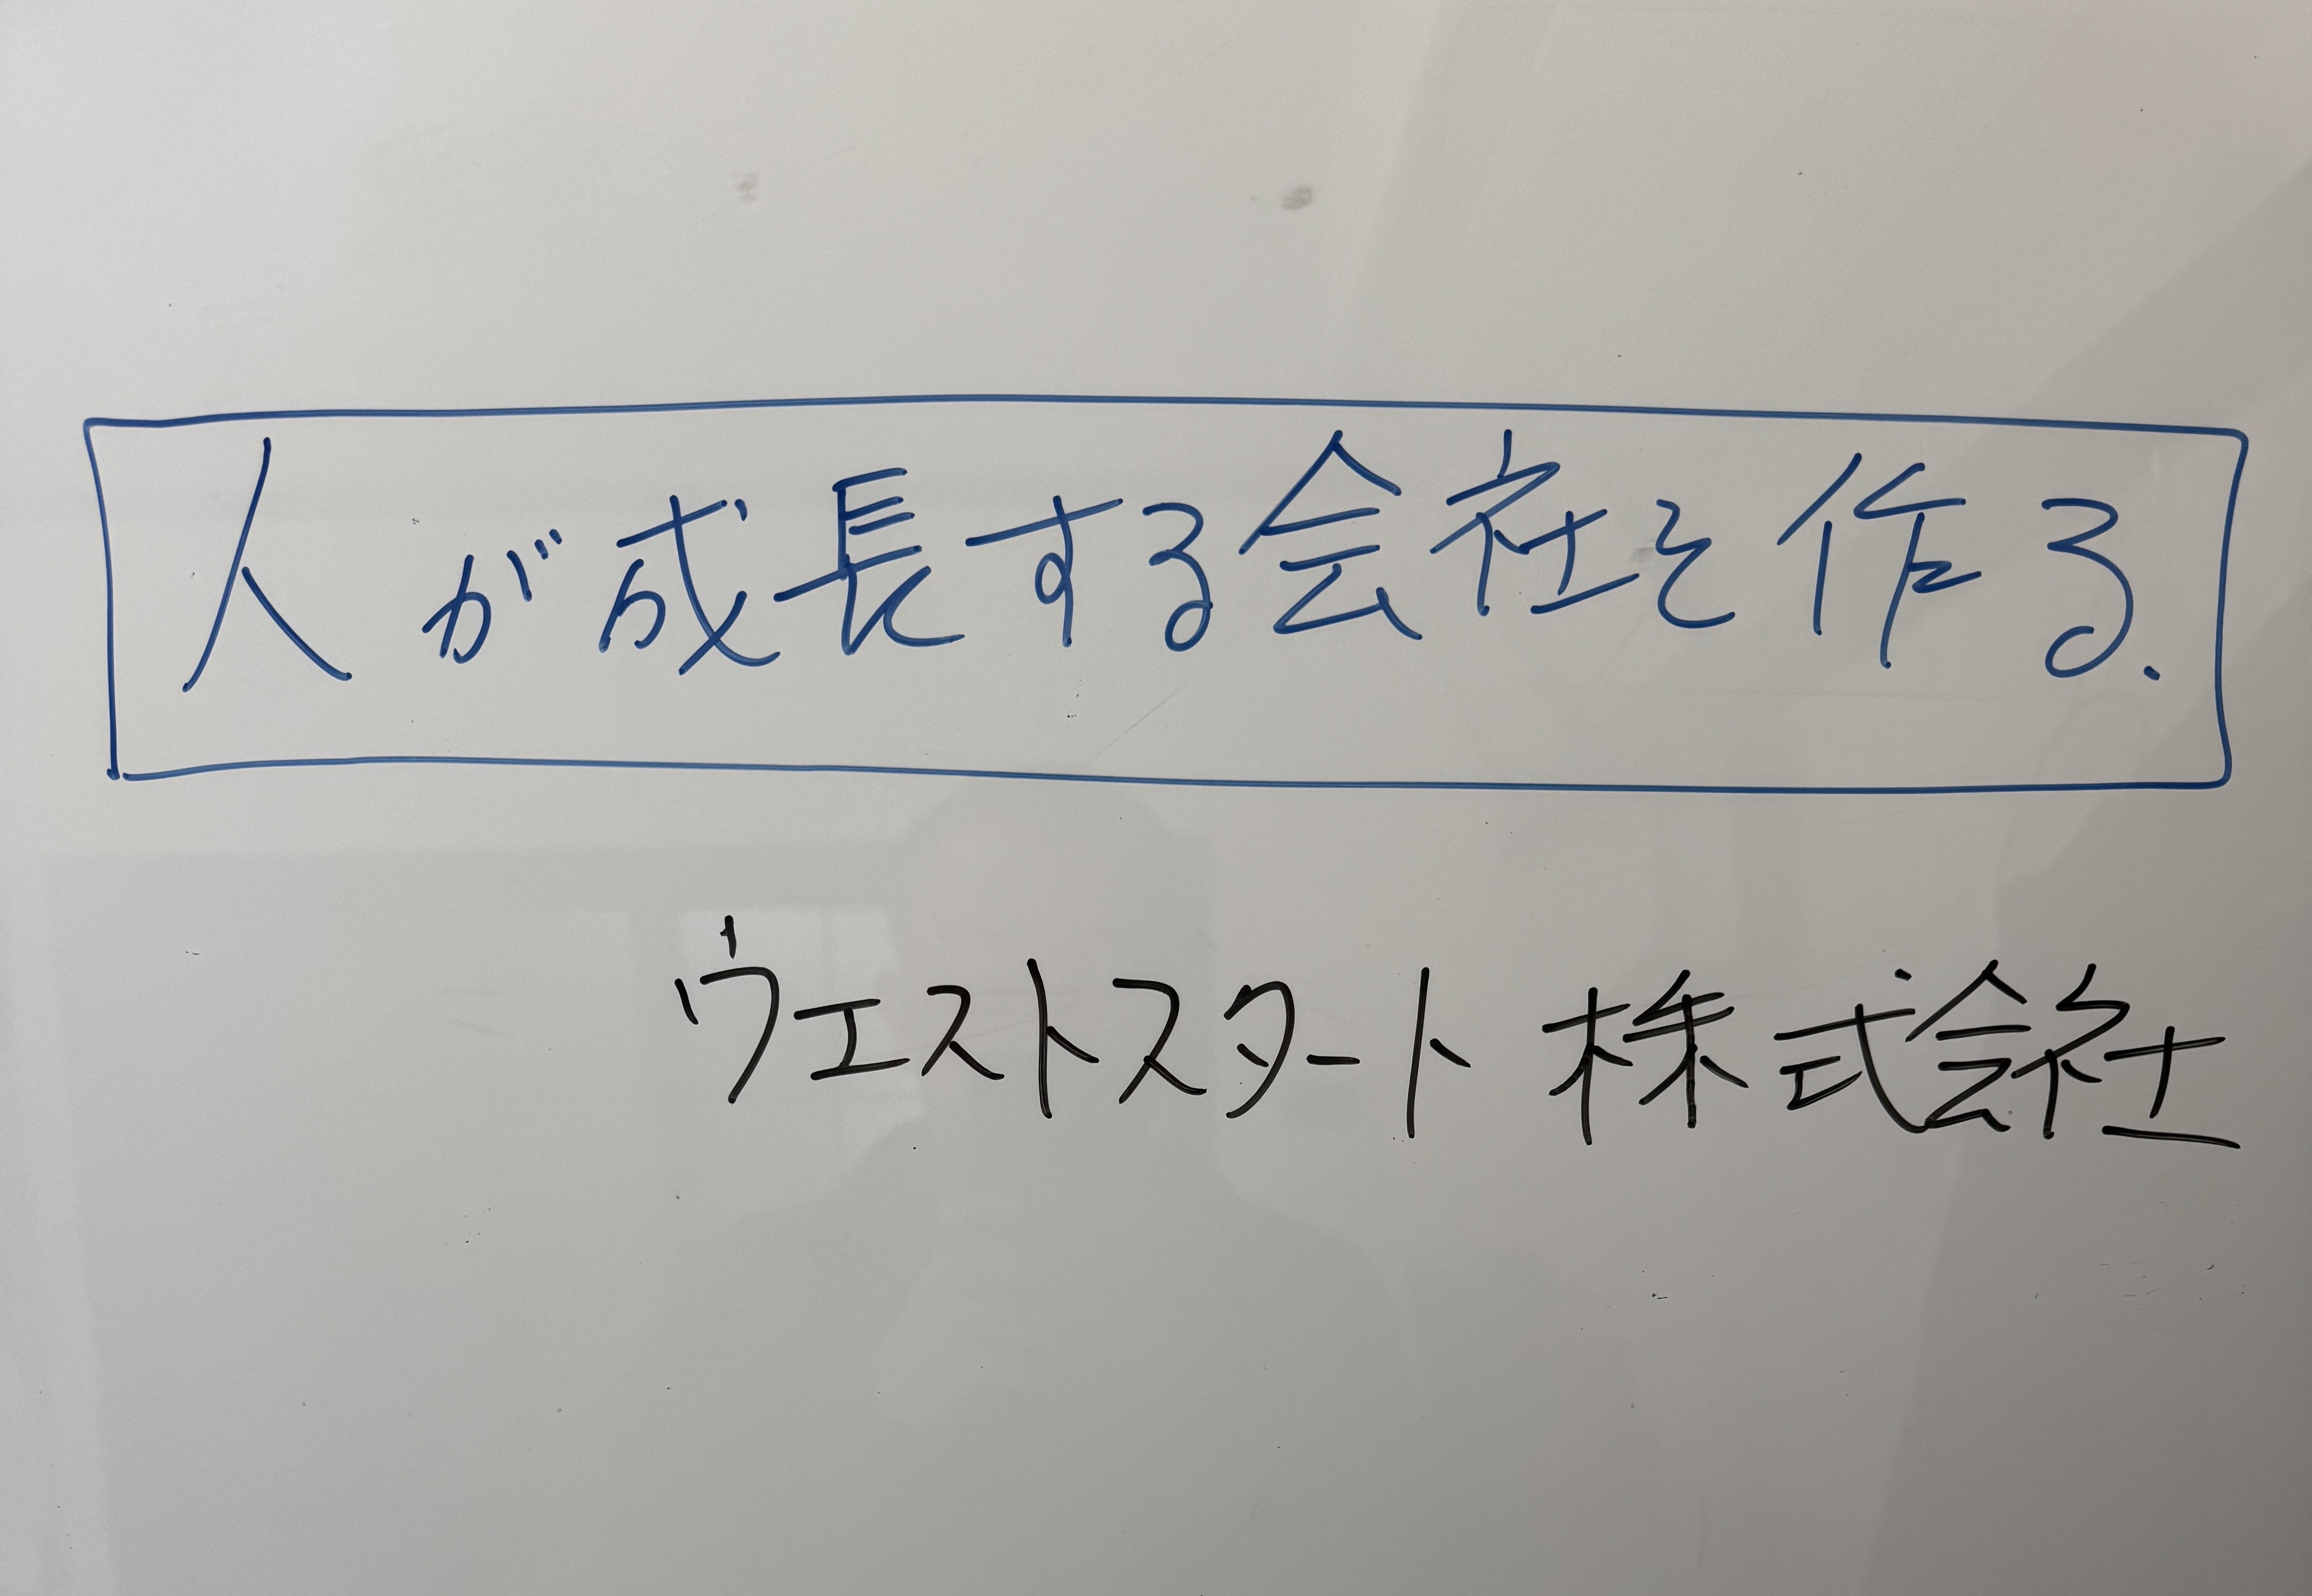 人が成長する会社を作る.
ウエストスタート株式会社